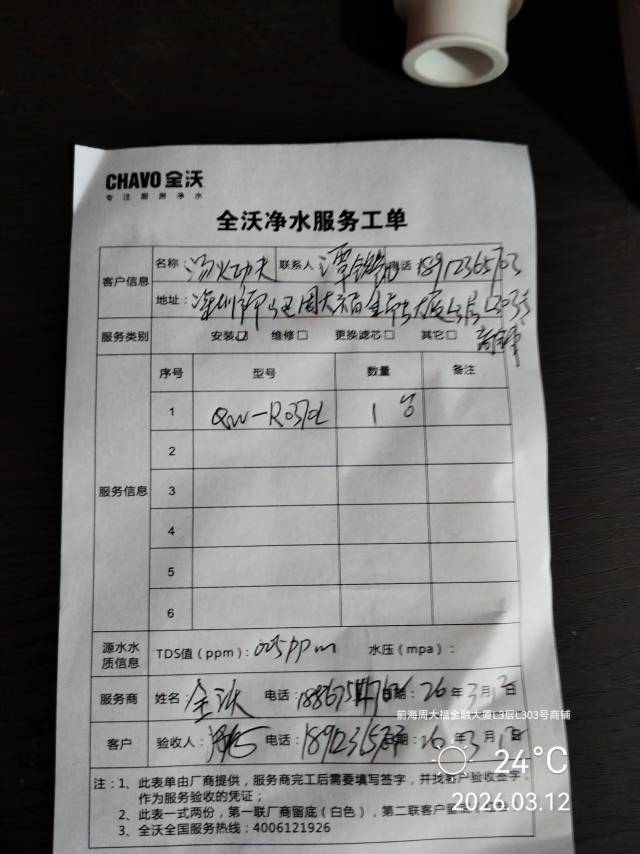 CHAVO 全沃
专注厨房净水
全沃净水服务工单
客户信息 名称 汤火功夫 联系人 谭 电话 18912365703
地址: 深圳市 周大福金融大厦 L3层L303号
商铺
服务类别 安装☑ 维修□ 更换滤芯□ 其它□
服务信息
序号 型号 数量 备注
1 QW-R03 1台
2
3
4
5
6
源水水质信息 TDS值(ppm): 025ppm 水压(mpa):
服务商 姓名: 全沃 电话: 日期: 26年3月12日
客户 验收人: 电话: 日期: 26年3月12日
前海周大福金融大厦L3层L303号商铺
24°C
2026.03.12
注:1、此表单由厂商提供,服务商完工后需要填写签字,并找客户验收签字,
作为服务验收的凭证;
2、此表一式两份,第一联厂商留底(白色),第二联客户留底
3、全沃全国服务热线:4006121926